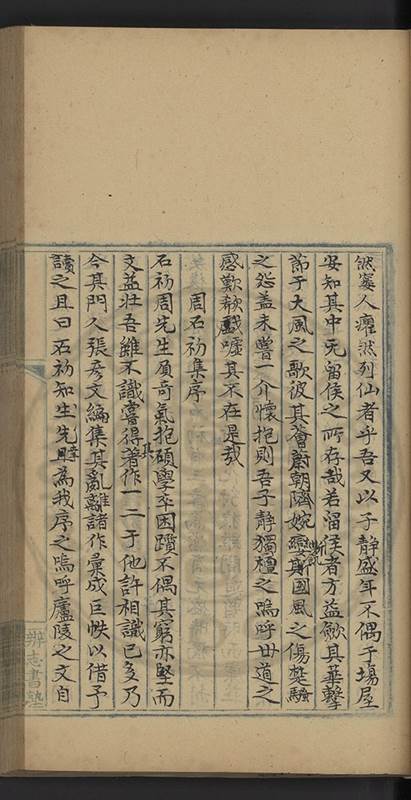 然窶人癯然列仙者乎吾又以子静盛年不偶于場屋
安知其中无留侯之所存哉若留侯者方益歛其華擊
節于大風之歌彼其薈蔚朝隮婉孌斯飢國風之傷楚騷
之怨蓋未嘗一介懷抱則吾子静獨檀之嗚呼世道之
感歎欷戲噓其不在是哉
周石初集序
石初周先生負奇氣抱碩學卒困躓不偶其窮亦堅而
文益壮吾雖不識嘗得其著作一二于他許相識已多乃
今其門人張彦文編集其亂離諸作彙成巨帙以借予
讀之且曰石初知先生時為我序之嗚呼廬陵之文自
辨志書塾